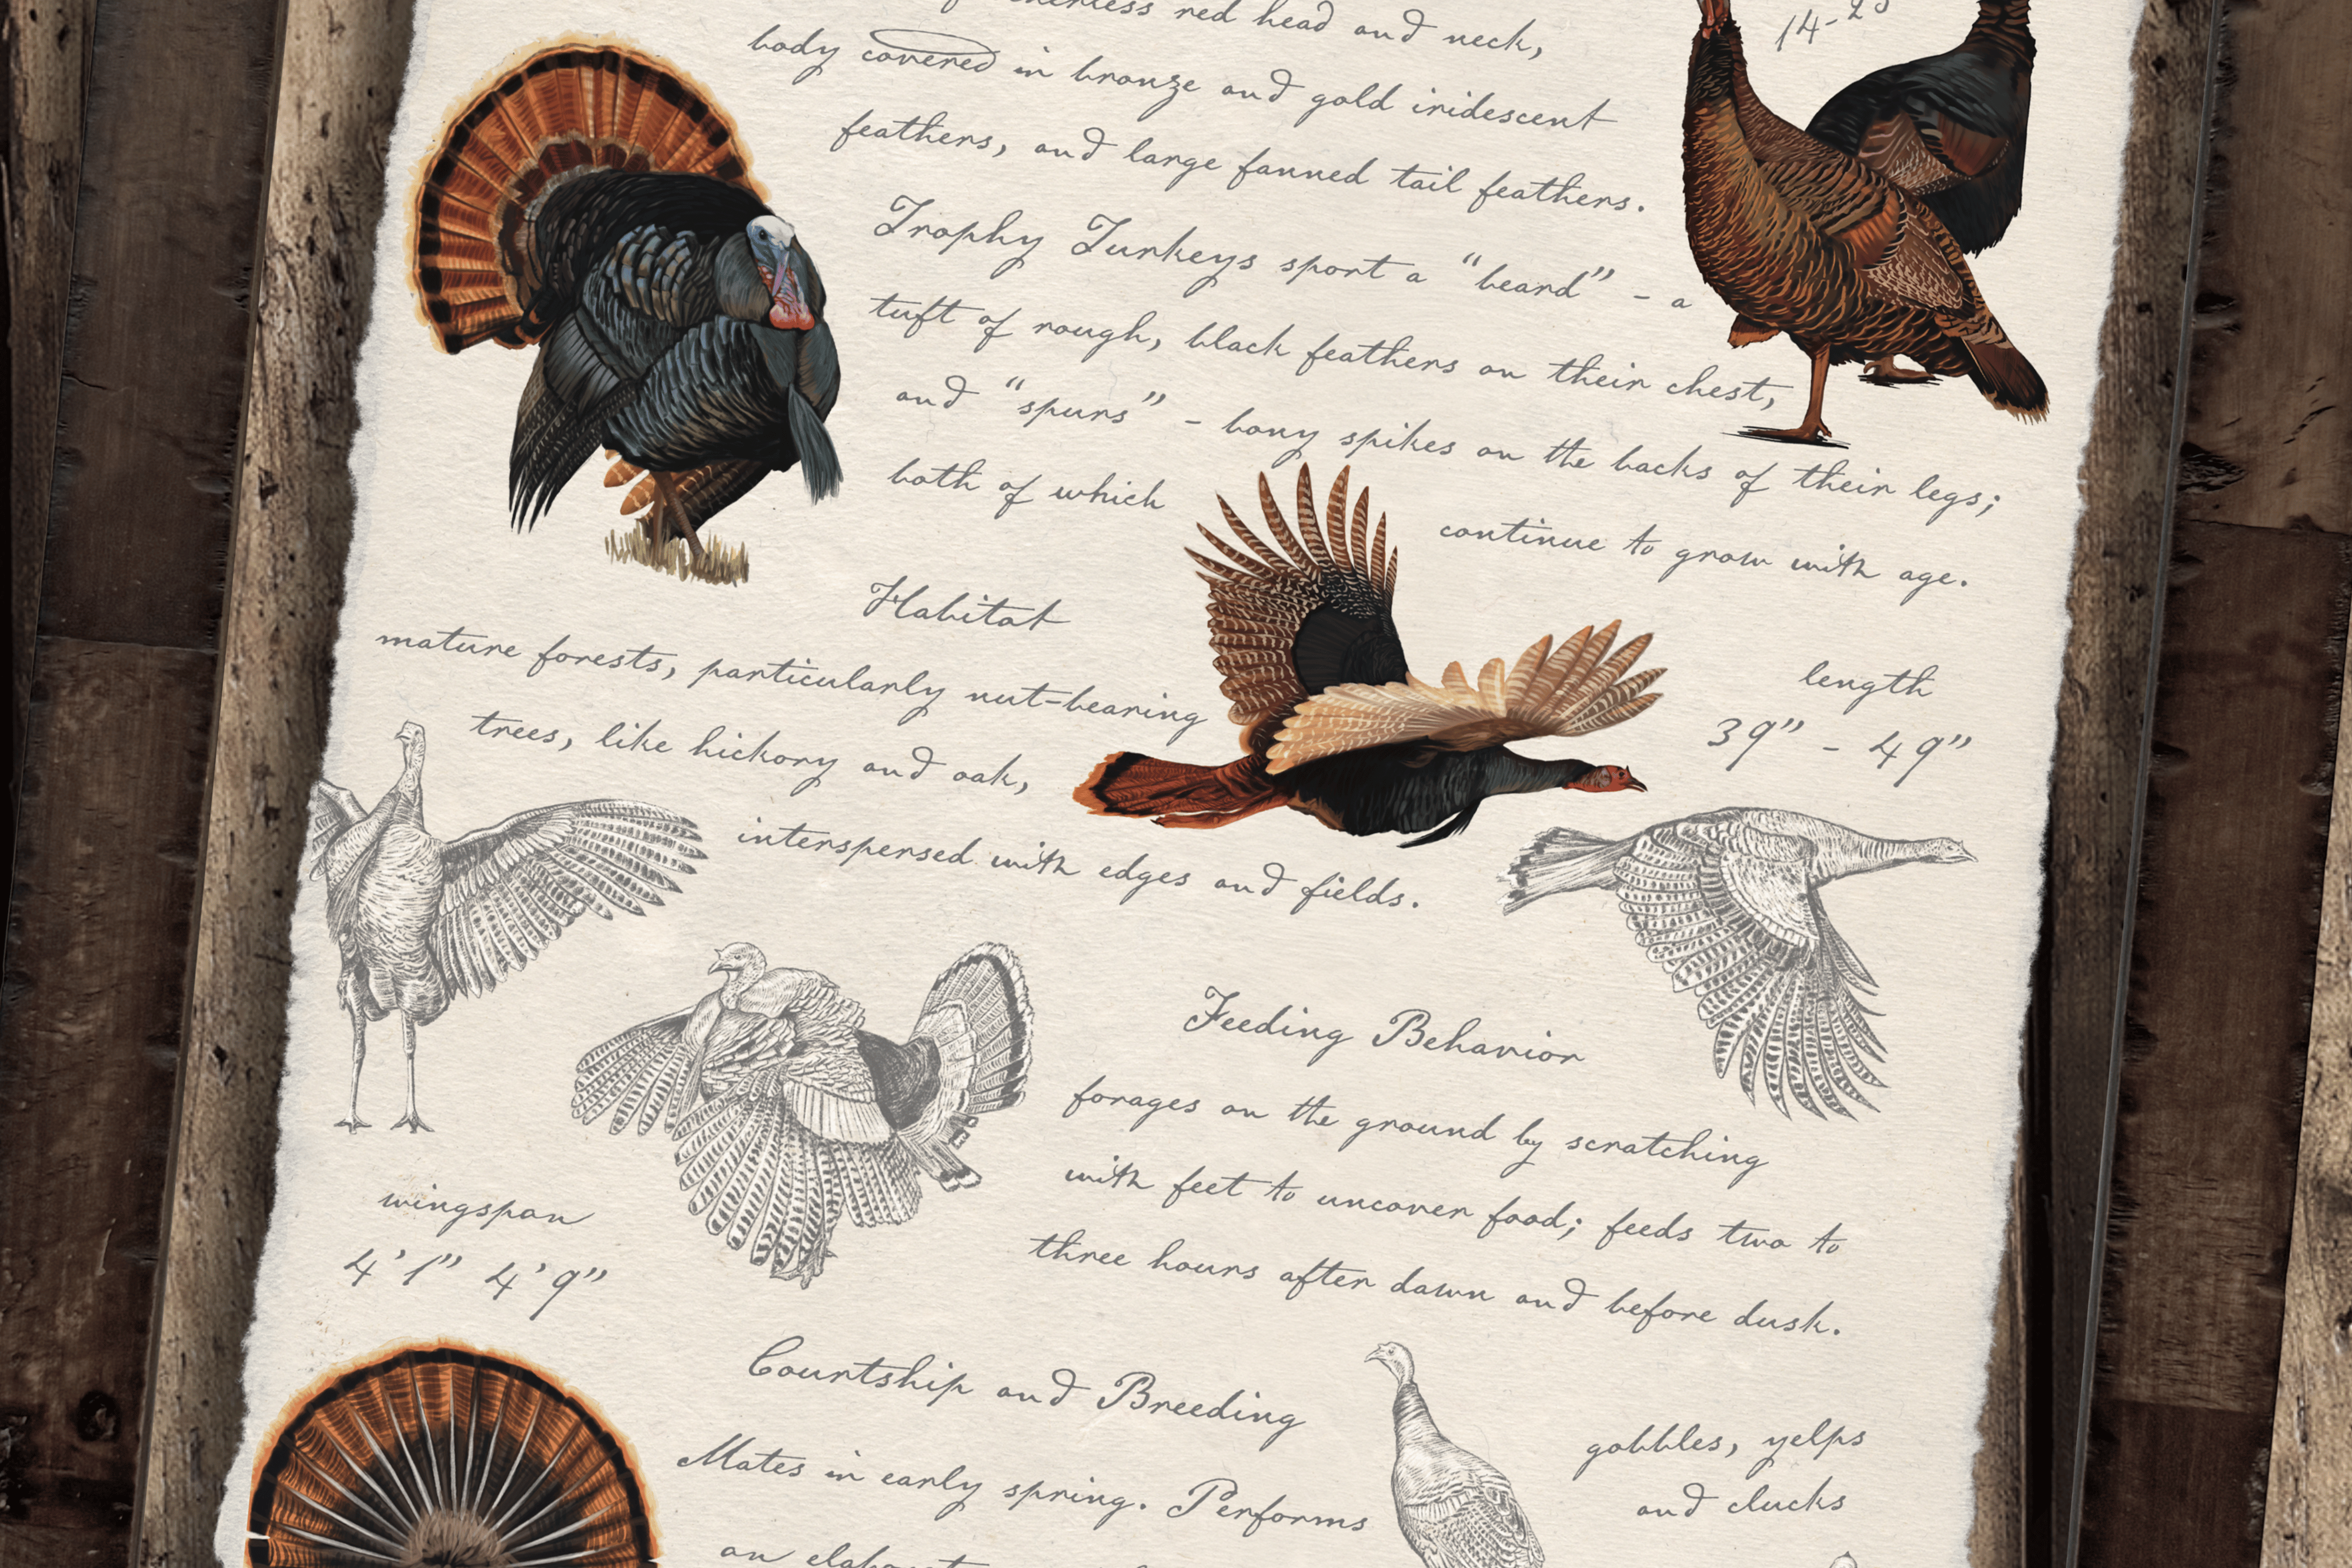 red head and neck,
14-
body covered in bronze and gold iridescent
feathers, and large fanned tail feathers.
Trophy Turkeys sport a "beard" - a
tuft of rough, black feathers on their chest,
and "spurs" - bony spikes on the backs of their legs;
both of which continue to grow with age.
Habitat
mature forests, particularly nut-bearing
trees, like hickory and oak,
interspersed with edges and fields.
length
39" - 49"
Feeding Behavior
forages on the ground by scratching
with feet to uncover food; feeds two to
three hours after dawn and before dusk.
wingspan
4'1" 4'9"
Courtship and Breeding
Mates in early spring. Performs
an
gobbles, yelps
and clucks